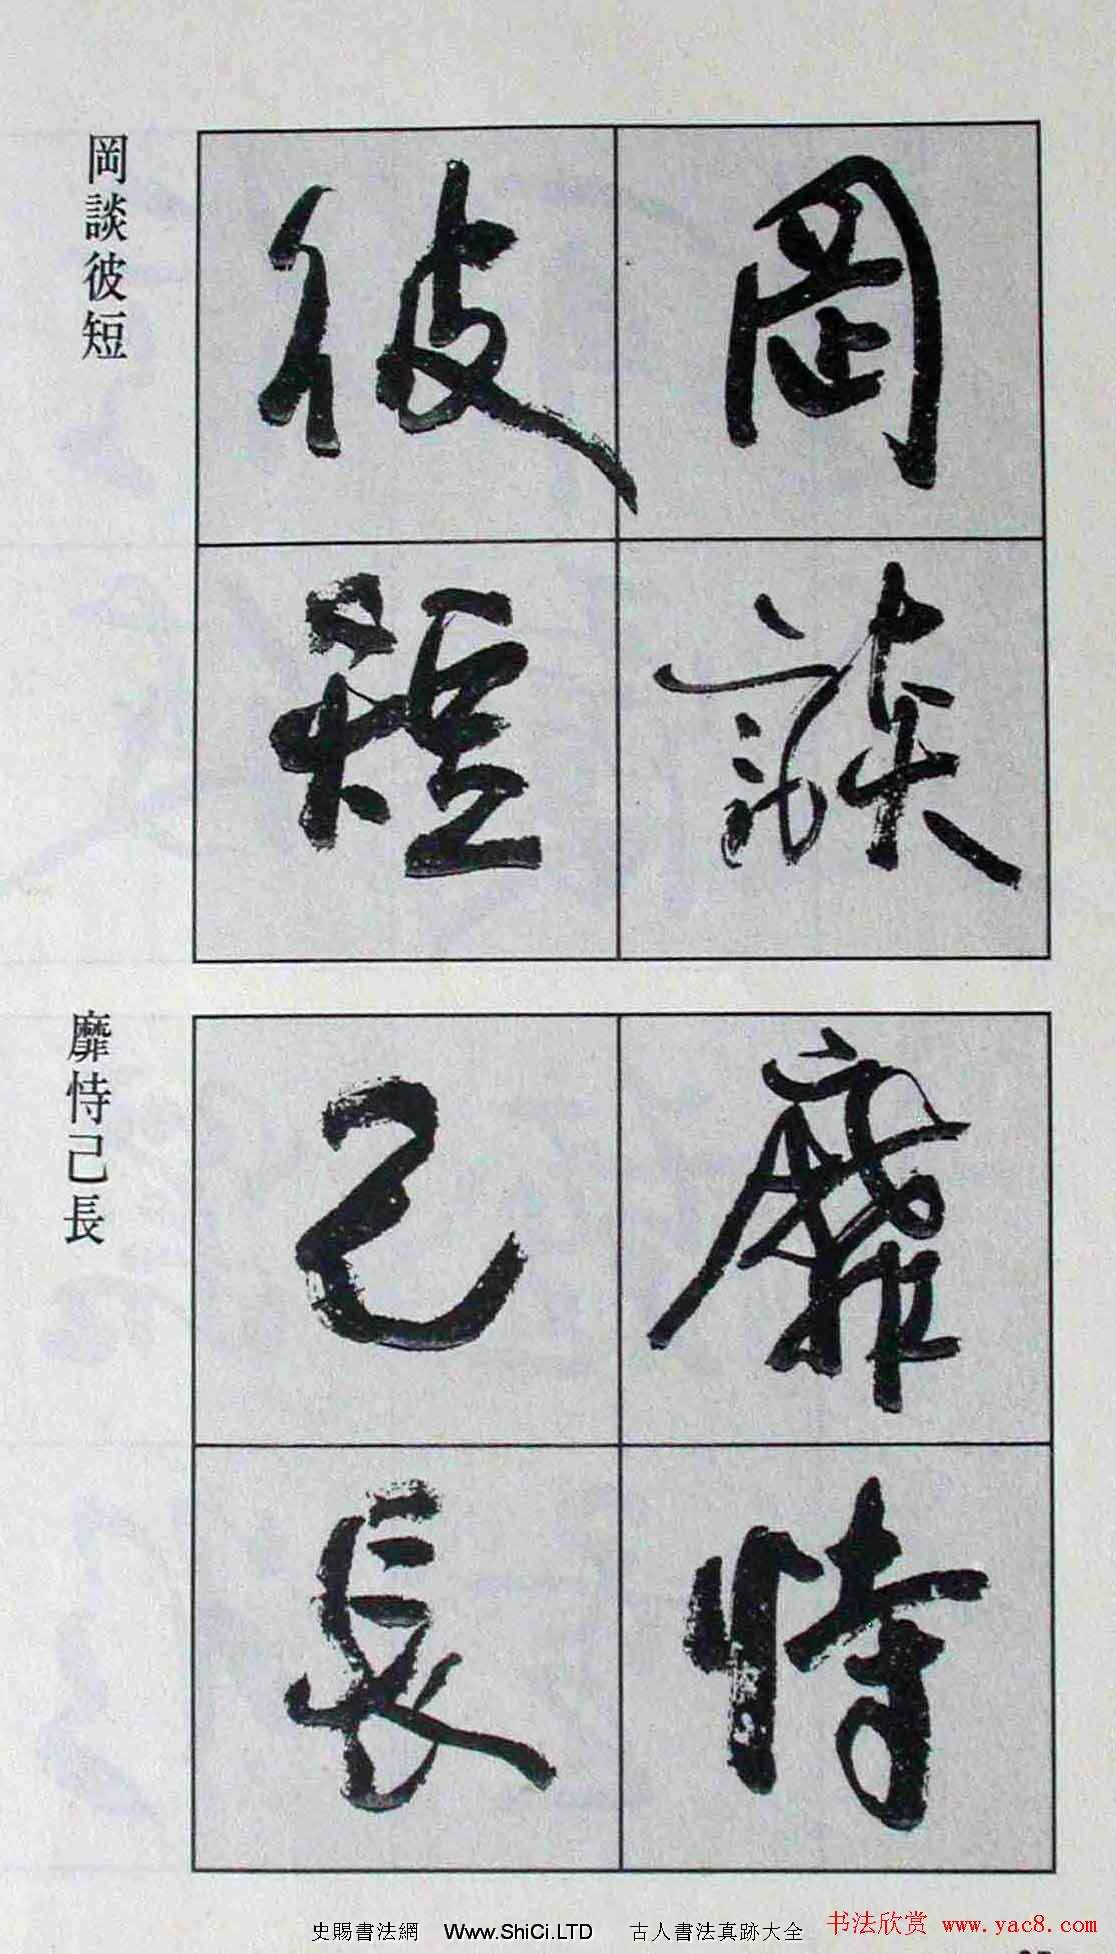 岡談
彼短
岡談彼短
靡恃
己長
靡恃己長
史賜書法網 Www.ShiCi.LTD 古人書法真跡大全
书法欣赏 www.yac8.com